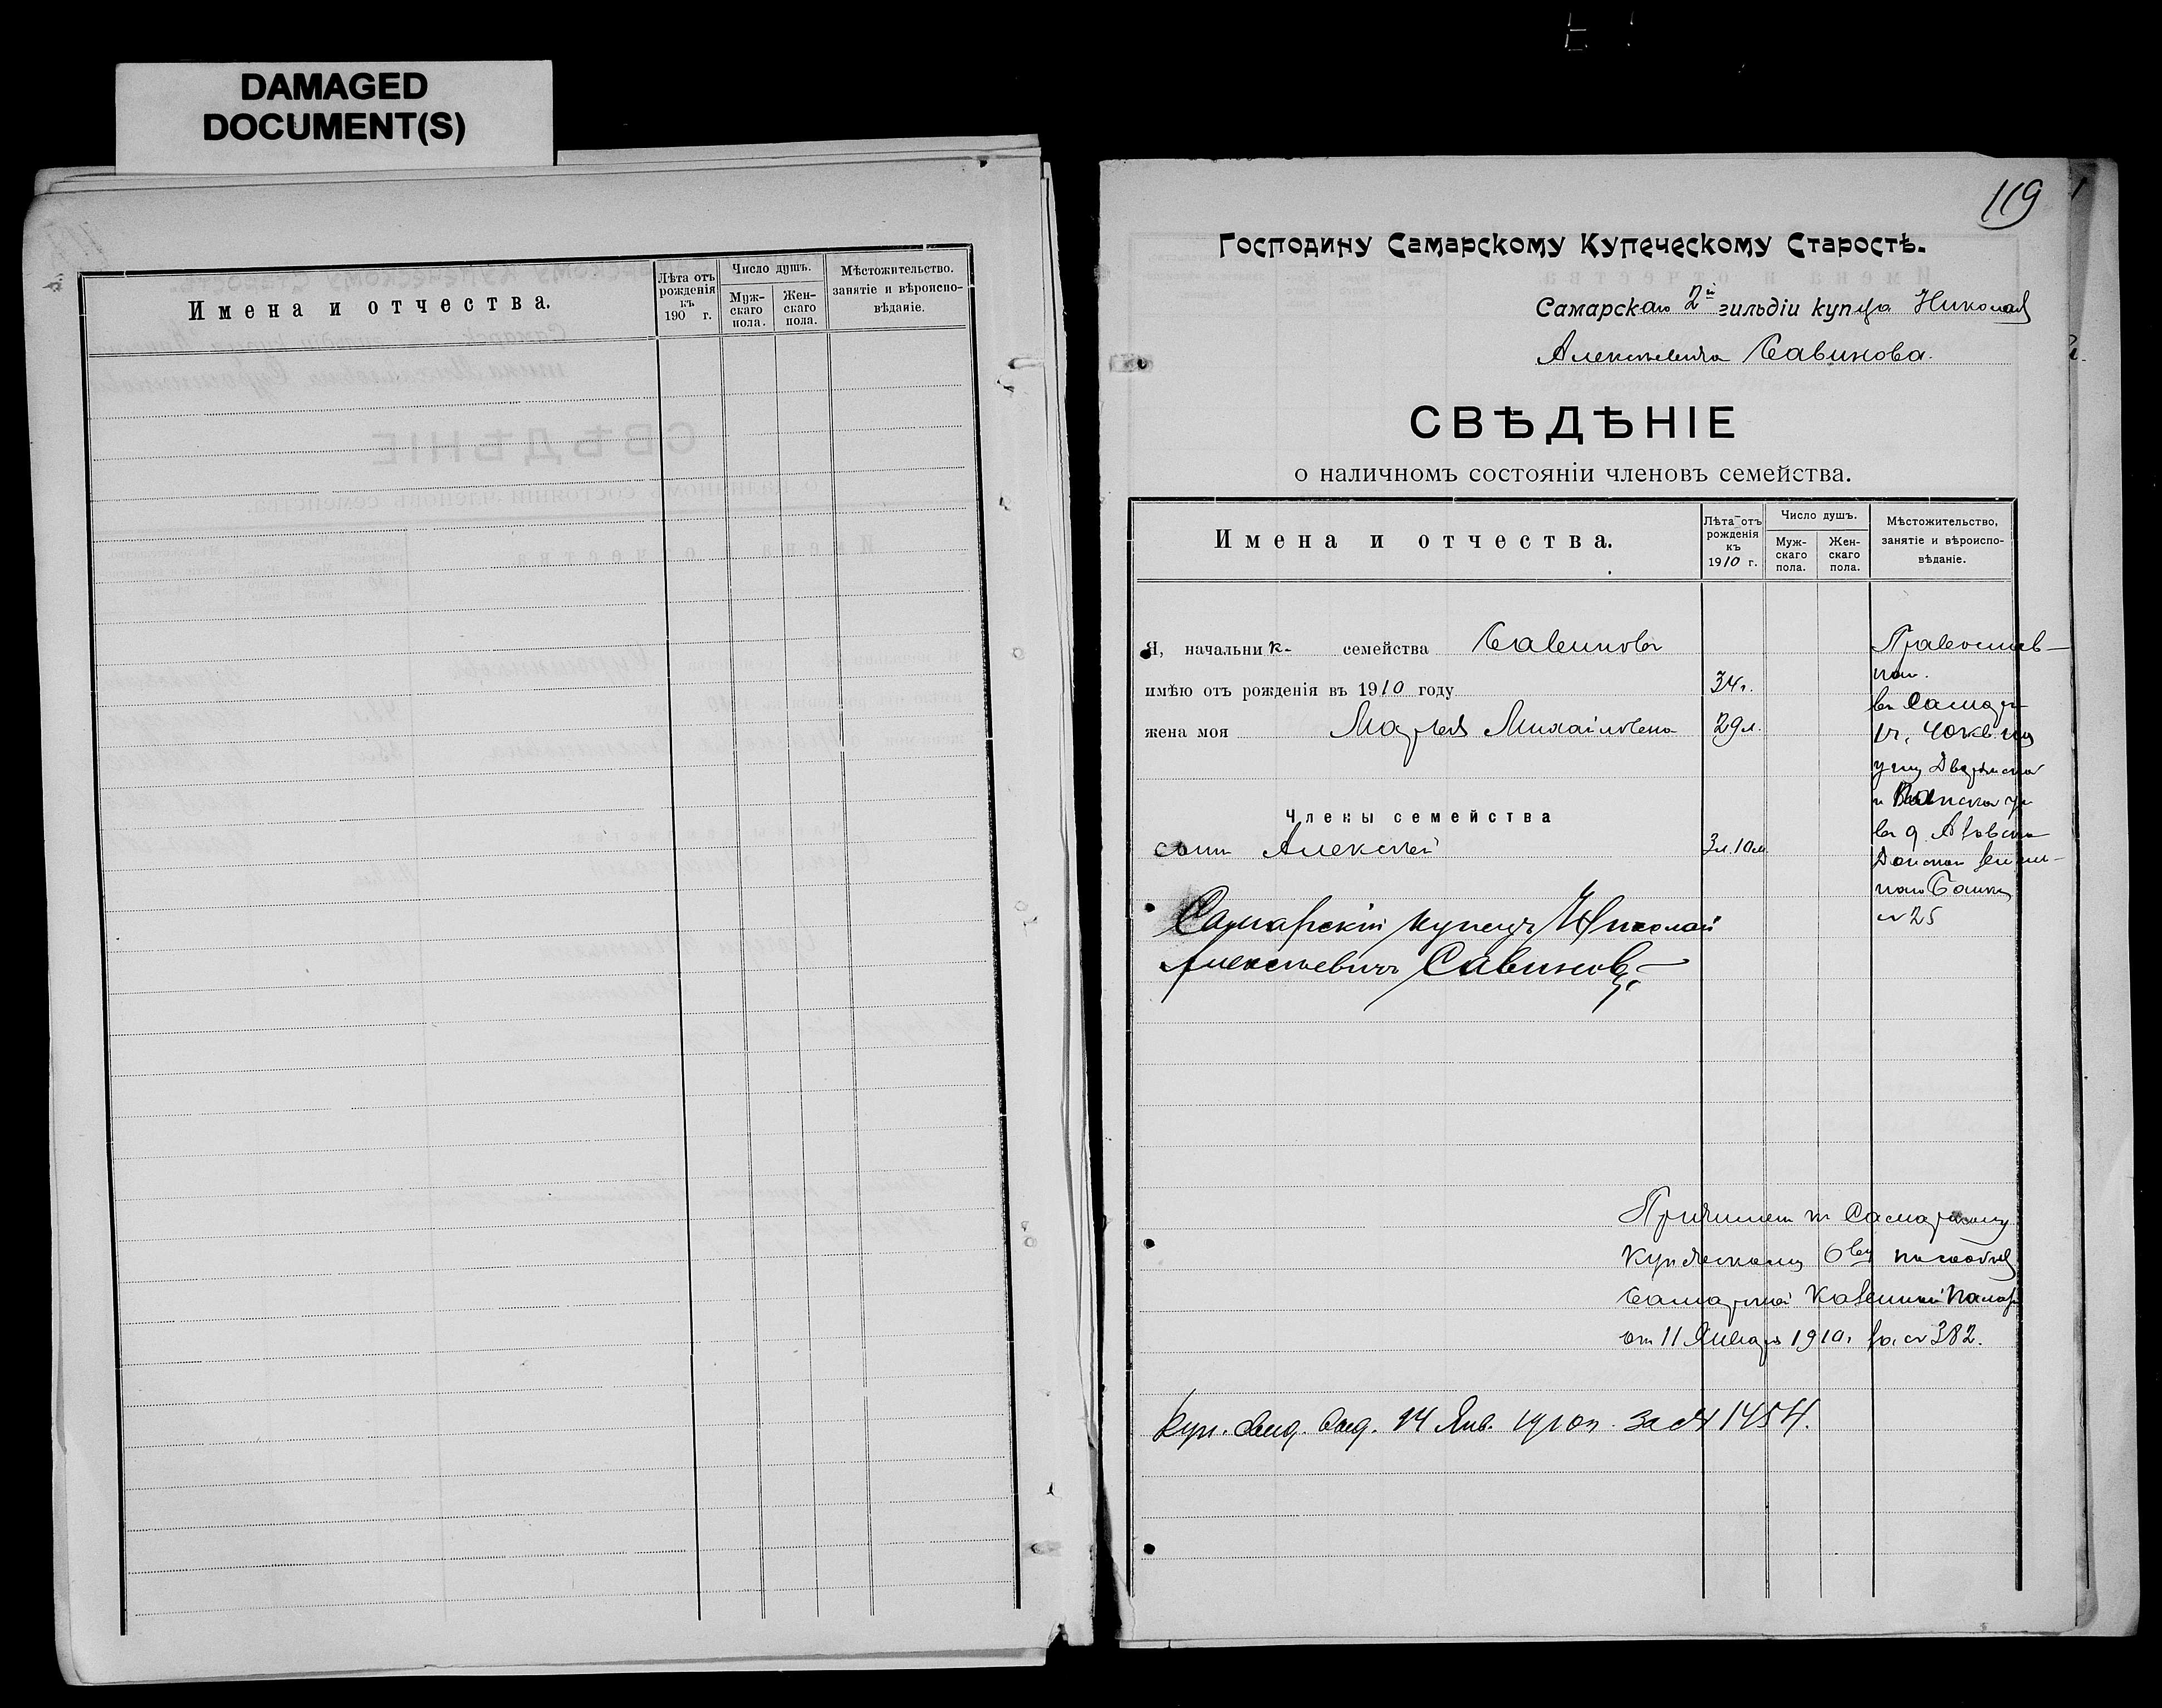 DAMAGED
DOCUMENT(S)
Имена и отчества.
Лѣта отъ рожденія къ 190 г.
Число душъ.
Мужскаго пола.
Женскаго пола.
Мѣстожительство, занятіе и вѣроисповѣданіе.
119
Господину Самарскому Купеческому Старостѣ.
Самарскаго 2й гильдіи купца Николая
Алексѣевича Савинова.
СВѢДѢНІЕ
о наличномъ состояніи членовъ семейства.
Имена и отчества.
Лѣта отъ
рожденія
къ
1910 г.
Число душъ.
Муж-
скаго
пола.
Жен-
скаго
пола.
Мѣстожительство,
занятіе и вѣроиспо-
вѣданіе.
Я, начальникъ семейства Савиновъ
имѣю отъ рожденія въ 1910 году 34 г.
жена моя Михайловна 29 л.
Члены семейства
сынъ Алексѣй 3 г. 10 м.
Православ-
ное.
въ Самарѣ
1 ч. 40 кв. на
углу Дворянской
и
въ д. Азовско
Донского
наго Банка
№ 25
Самарскій купецъ Николай
Алексѣевичъ Савиновъ
Причисленъ къ Самарскому
Купеческому О-ву
Самарской Казенной Палаты
от 11 Января 1910 г. за № 382.
Куп. свид. выд. 14 Янв. 1910 г. за № 1454.